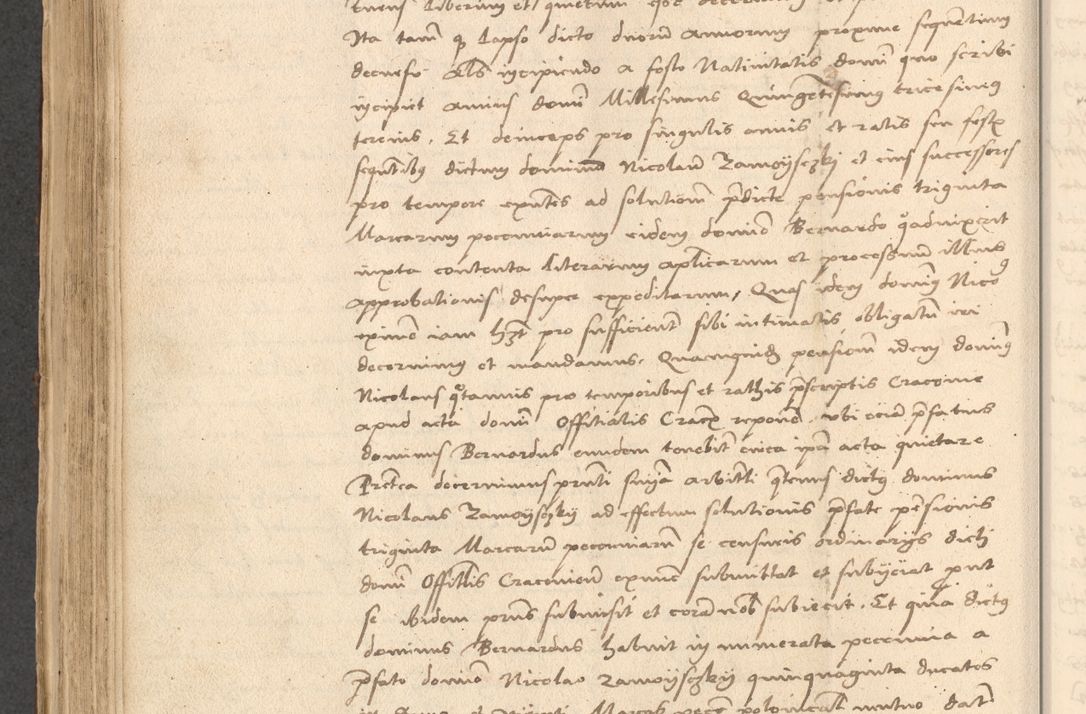 Ita tamē q lapso dicto duorū annorum proxime sequentium
decursu als incipiendo a festo Natiuitatis domī quo scribi
incipiet annus domī Millesimus Quingētesimus tricesimus
tercius. Et deinceps pro singulis annis et ratis seu festis
sequētibus dictum dominū Nicolaū Zamoysczky et eius successores
pro tempore exntes ad solutionē pdicte pensionis triginta
Marcarum pecuniarum eidem domino Bernardo quoaduixerit
iuxta contenta literarum aplicarum et processuum illius
approbationis desuper expeditarum, Quas idem dominus Nico
eximē iam hꝫt pro sufficient sibi intimatis obligatū iri
decernimus et mandamus. Quamquidē pensionē idem dominus
Nicolaus quotannis pro temporibus et rathis pscriptis Cracouie
apud acta domī Officialis Crac reponet, ubi eciā pfatus
dominus Bernardus eundem tenebit circa ipa acta quietare
Preterea decernimus pnti sniā arbitli qtenus dictus dominus
Nicolaus Zamoysczky ad effectum solutionis pfate pensionis
triginta Marcarū pecuniarū se censuris ordinarijs dicti
domī Offitlis Cracouien eximē submittat et subijciat put
se ibidem prius submisit et corā nob subiecit. Et quia dictus
dominus Bernardus habuit in numerata pecunia a
pfato domino Nicolao Zamoysczky quinquaginta ducatos